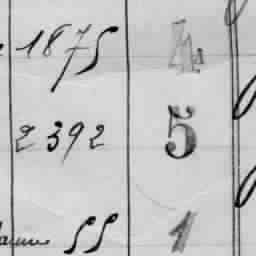 1875 4
2392 5
55 1